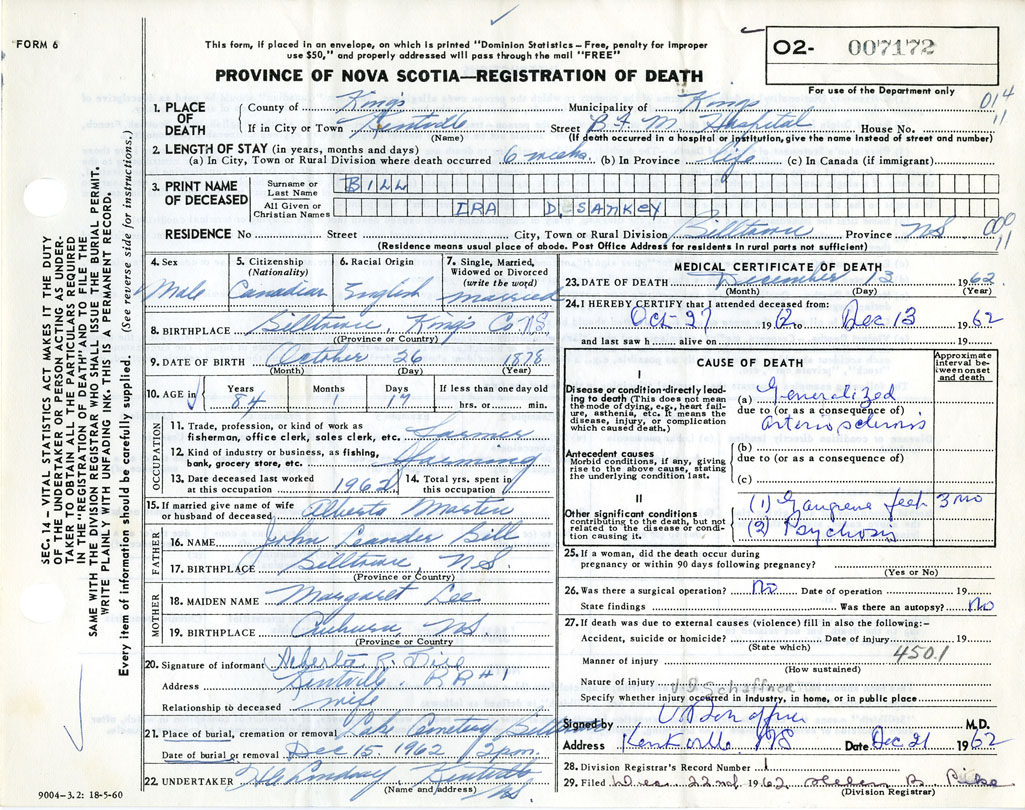 FORM 6
This form, if placed in an envelope, on which is printed "Dominion Statistics – Free, penalty for improper
use $50," and properly addressed will pass through the mail "FREE"
O2- 007172
PROVINCE OF NOVA SCOTIA—REGISTRATION OF DEATH
For use of the Department only
1. PLACE OF DEATH
County of King's Municipality of Kings
014
11
If in City or Town Kentville Street B. F. M. Hospital House No.
(Name) (If death occurred in a hospital or institution, give the name instead of street and number)
2. LENGTH OF STAY (in years, months and days)
(a) In City, Town or Rural Division where death occurred 6 weeks (b) In Province life (c) In Canada (if immigrant)
3. PRINT NAME OF DECEASED
Surname or Last Name BILL
All Given or Christian Names IRA D. SANKEY
RESIDENCE No Street City, Town or Rural Division Billtown Province NS
000
11
(Residence means usual place of abode. Post Office Address for residents in rural parts not sufficient)
SEC. 14 – VITAL STATISTICS ACT MAKES IT THE DUTY
OF THE UNDERTAKER OR PERSON ACTING AS UNDER-
TAKER TO OBTAIN ALL THE PARTICULARS REQUIRED
IN THE "REGISTRATION OF DEATH" AND TO FILE THE
SAME WITH THE DIVISION REGISTRAR WHO SHALL ISSUE THE BURIAL PERMIT.
WRITE PLAINLY WITH UNFADING INK. THIS IS A PERMANENT RECORD.
Every item of information should be carefully supplied. (See reverse side for instructions.)
4. Sex
Male
5. Citizenship
(Nationality)
Canadian
6. Racial Origin
English
7. Single, Married,
Widowed or Divorced
(write the word)
married
8. BIRTHPLACE Billtown, King's Co. N.S.
(Province or Country)
9. DATE OF BIRTH October 26 1878
(Month) (Day) (Year)
10. AGE in
Years Months Days If less than one day old
84 1 17 hrs. or min.
OCCUPATION
11. Trade, profession, or kind of work as
fisherman, office clerk, sales clerk, etc. Farmer
12. Kind of industry or business, as fishing,
bank, grocery store, etc. Farming
13. Date deceased last worked
at this occupation 1962
14. Total yrs. spent in
this occupation
15. If married give name of wife
or husband of deceased Alberta Martin
FATHER
16. NAME John Leander Bill
17. BIRTHPLACE Billtown N.S.
(Province or Country)
MOTHER
18. MAIDEN NAME Margaret Lee
19. BIRTHPLACE Auburn, N.S.
(Province or Country
20. Signature of informant
Address Kentville RR
Relationship to deceased wife
21. Place of burial, cremation or removal Cemetery
Date of burial or removal Dec 15, 1962 2 p.m.
22. UNDERTAKER Lindsay Kentville
(Name and address) NS
9004-3.2: 18-5-60
MEDICAL CERTIFICATE OF DEATH
23. DATE OF DEATH December 13 1962
(Month) (Day) (Year)
24. I HEREBY CERTIFY that I attended deceased from:
Oct 27 1962 to Dec 13 1962
and last saw h alive on 19
CAUSE OF DEATH
Approximate
interval between
onset
and death
I
Disease or condition directly lead-
ing to death (This does not mean
the mode of dying, e.g., heart fail-
ure, asthenia, etc. It means the
disease, injury, or complication
which caused death.)
(a) Generalized
due to (or as a consequence of)
arteriosclerosis
Antecedent causes
Morbid conditions, if any, giving
rise to the above cause, stating
the underlying condition last.
(b)
due to (or as a consequence of)
(c)
II
Other significant conditions
contributing to the death, but not
related to the disease or condi-
tion causing it.
(1) Gangrene feet 3 mo
(2) Psychosis
25. If a woman, did the death occur during
pregnancy or within 90 days following pregnancy?
(Yes or No)
26. Was there a surgical operation? No Date of operation 19
State findings Was there an autopsy? No
27. If death was due to external causes (violence) fill in also the following:-
Accident, suicide or homicide? Date of injury 19
(State which)
450.1
Manner of injury
(How sustained)
Nature of injury
Specify whether injury occurred in industry, in home, or in public place
Schaffner
Signed by M.D.
Address Kentville NS Date Dec 21 1962
28. Division Registrar's Record Number 1
29. Filed Dec 22nd 1962 B. Pike
(Division Registrar)